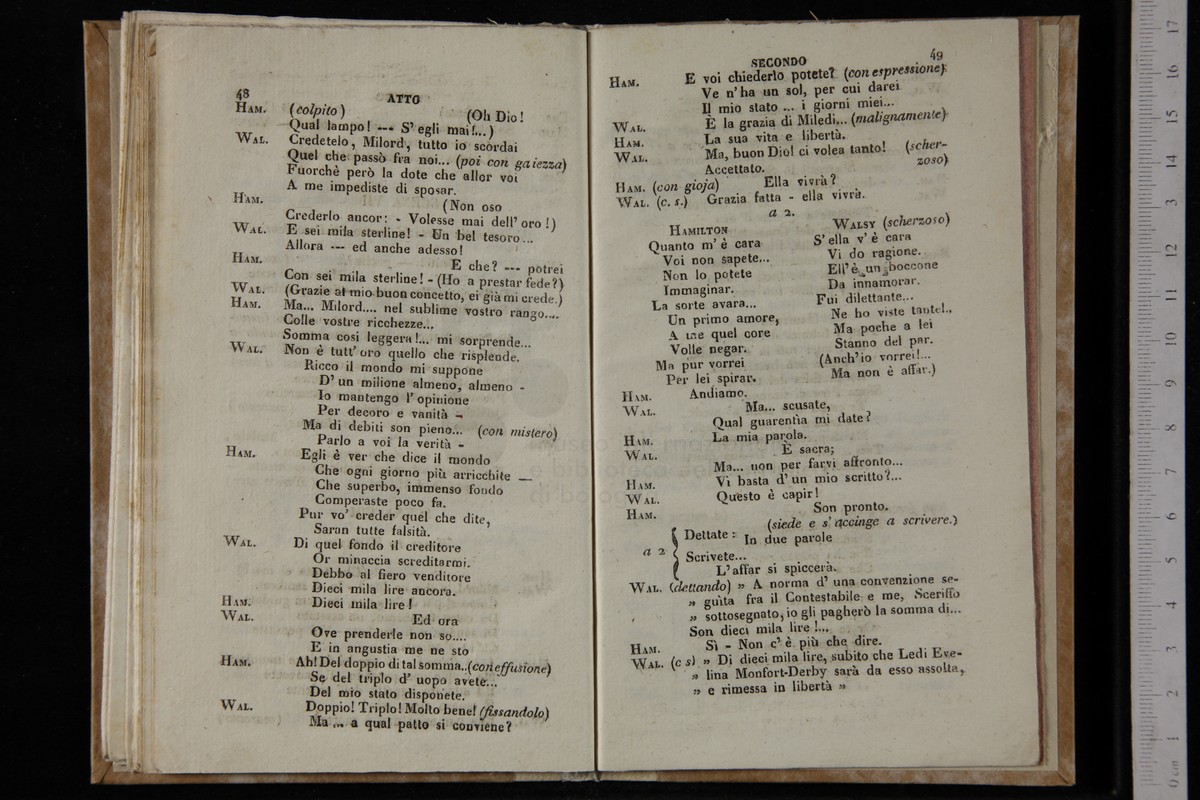 48
ATTO
HAM. (colpito) (Oh Dio!
Qual lampo! --- S' egli mai!...)
WAL. Credetelo, Milord, tutto io scordai
Quel che passò fra noi... (poi con gaiezza)
Fuorchè però la dote che allor voi
A me impediste di sposar.
HAM. (Non oso
Crederlo ancor: - Volesse mai dell' oro!)
WAL. E sei mila sterline! - Un bel tesoro...
Allora --- ed anche adesso!
HAM. E che? --- potrei
Con sei mila sterline! - (Ho a prestar fede?)
WAL. (Grazie al mio buon concetto, ei già mi crede.)
HAM. Ma... Milord.... nel sublime vostro rango....
Colle vostre ricchezze...
Somma così leggera!... mi sorprende...
WAL. Non è tutt' oro quello che risplende.
Ricco il mondo mi suppone
D' un milione almeno, almeno -
Io mantengo l' opinione
Per decoro e vanità -
Ma di debiti son pieno... (con mistero)
Parlo a voi la verità -
HAM. Egli è ver che dice il mondo
Che ogni giorno più arricchite —
Che superbo, immenso fondo
Comperaste poco fa.
Pur vo' creder quel che dite,
Saran tutte falsità.
WAL. Di quel fondo il creditore
Or minaccia screditarmi.
Debbo al fiero venditore
Dieci mila lire ancora.
HAM. Dieci mila lire!
WAL. Ed ora
Ove prenderle non so....
E in angustia me ne sto
HAM. Ah! Del doppio di tal somma..(con effusione)
Se del triplo d' uopo avete...
Del mio stato disponete.
WAL. Doppio! Triplo! Molto bene! (fissandolo)
Ma ... a qual patto si conviene?
SECONDO
49
HAM. E voi chiederlo potete? (con espressione)
Ve n' ha un sol, per cui darei
Il mio stato ... i giorni miei...
WAL. È la grazia di Miledi... (malignamente)
HAM. La sua vita e libertà.
WAL. Ma, buon Dio! ci volea tanto! (scher-
Accettato. zoso)
HAM. (con gioja) Ella vivrà?
WAL. (c. s.) Grazia fatta - ella vivrà.
a 2.
HAMILTON
Quanto m' è cara
Voi non sapete...
Non lo potete
Immaginar.
La sorte avara...
Un primo amore,
A me quel core
Volle negar.
Ma pur vorrei
Per lei spirar.
WALSY (scherzoso)
S' ella v' è cara
Vi do ragione.
Ell' è un boccone
Da innamorar.
Fui dilettante...
Ne ho viste tante!..
Ma poche a lei
Stanno del par.
(Anch' io vorrei!...
Ma non è affar.)
HAM. Andiamo.
WAL. Ma... scusate,
Qual guarentìa mi date?
HAM. La mia parola.
WAL. È sacra;
Ma... non per farvi affronto...
HAM. Vi basta d' un mio scritto?...
WAL. Questo è capir!
HAM. Son pronto.
(siede e s' accinge a scrivere.)
a 2 Dettate: In due parole
Scrivete...
L' affar si spiccerà.
WAL. (dettando) » A norma d' una convenzione se-
» guìta fra il Contestabile e me, Sceriffo
» sottosegnato, io gli pagherò la somma di...
Son dieci mila lire!...
HAM. Sì - Non c' è più che dire.
WAL. (c s) » Di dieci mila lire, subito che Ledi Eve-
» lina Monfort-Derby sarà da esso assolta,
» e rimessa in libertà »
0 cm 1 2 3 4 5 6 7 8 9 10 11 12 13 14 15 16 17